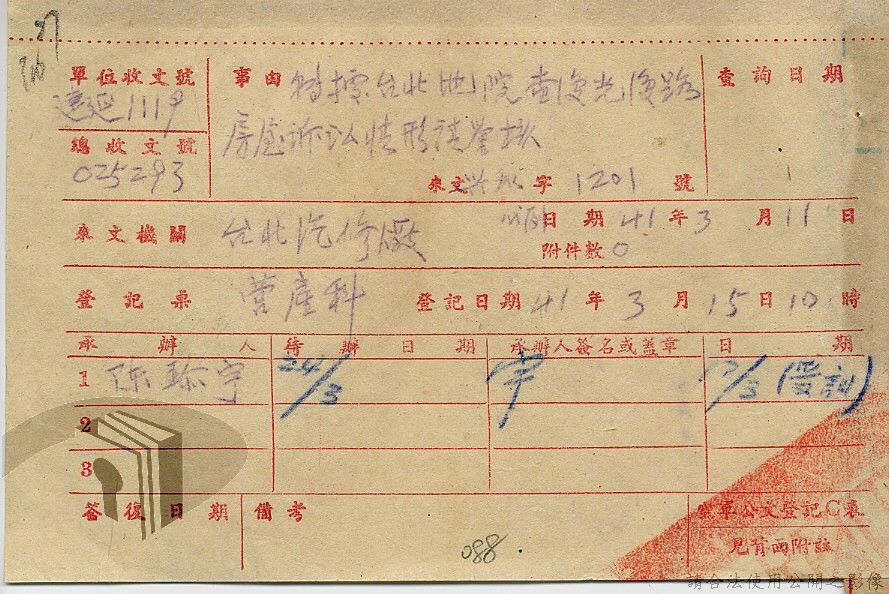 單位收文號
1119
總收文號
025293
事由
台北地院查復光復路
房屋訴訟情形請鑒核
來文 字 1201 號
查詢日期
1
來文機關
台北汽修廠
日期 41 年 3 月 11 日
附件數 0
登記票
營產科
登記日期 41 年 3 月 15 日 10 時
承辦人
待辦日期
承辦人簽名或蓋章
日期
1
24/3
宇
/3
2
3
簽復日期
備考
公文登記C表
見背面附註
088
請合法使用公開之影像